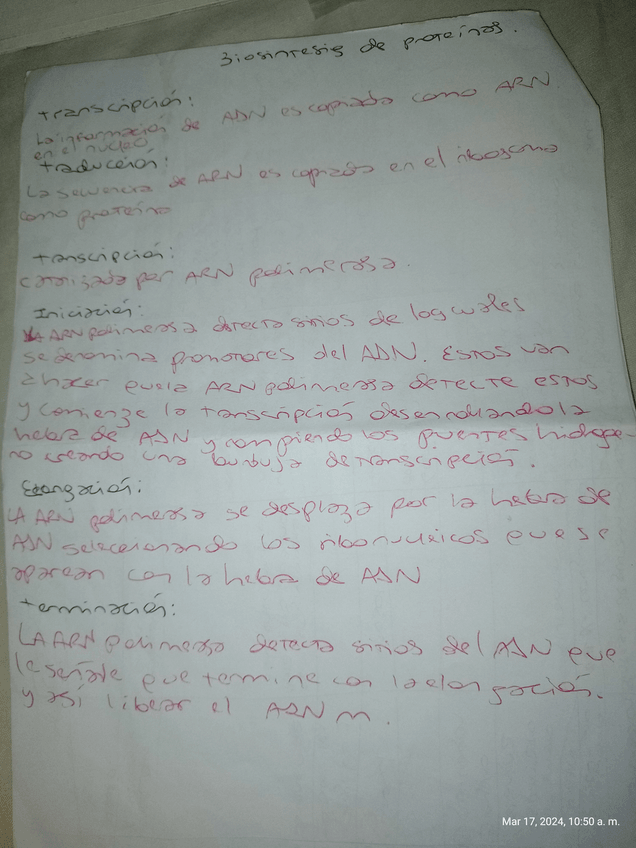 Biosintesis de proteinas.
transcripción:
La información de ADN es copiada como ARN
en el nucleo
traducción:
La secuencia de ARN es copiada en el ribosoma
como proteína
transcripción:
catalizada por ARN polimerasa.
Iniciación:
LA ARN polimerasa detecta sitios de los cuales
se denomina promotores del ADN. Estos van
a hacer que la ARN polimerasa detecte estos
y comienze la transcripción desenrollando la
hebra de ADN y rompiendo los puentes hidroge-
no creando una burbuja de transcripción.
Elongación:
LA ARN polimerasa se desplaza por la hebra de
ADN seleccionando los ribonucleicos que se
aparean con la hebra de ADN
terminación:
LA ARN polimerasa detecta sitios del ADN que
le señale que termine con la elongación.
y así liberar el ARN m.
Mar 17, 2024, 10:50 a. m.